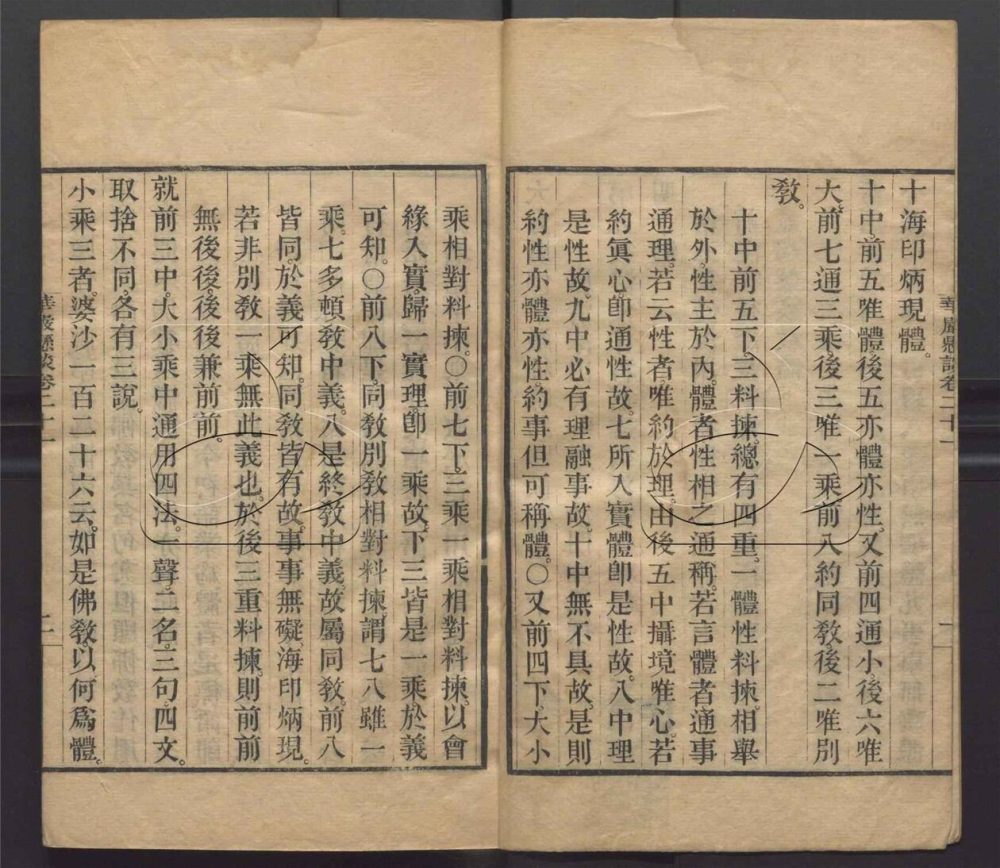 十海印炳現體。
十中前五唯體後五亦體亦性。又前四通小。後六唯
大。前七通三乘後三唯一乘前八約同敎後二唯別
敎。
十中前五下。三料揀。總有四重。一體性料揀。相舉
於外。性主於內。體者性相之通稱。若言體者通事
通理。若云性者唯約於理。由後五中攝境唯心。若
約眞心卽通性故。七所入實體卽是性故。八中理
是性故。九中必有理融事故。十中無不具故。是則
約性亦體亦性。約事但可稱體。〇又前四下。大小
乘相對料揀。〇前七下。三乘一乘相對料揀。以會
緣入實。歸一實理卽一乘故。下三皆是一乘。於義
可知。〇前八下。同敎別敎相對料揀。謂七八雖一
乘。七多頓敎中義。八是終敎中義。故屬同敎。前八
皆同。於義可知。同敎皆有故。事事無礙海印炳現。
若非別敎一乘。無此義也。於後三重料揀。則前前
無後後。後後兼前前。
就前三中。大小乘中通用四法。一聲。二名。三句。四文。
取捨不同。各有三說。
小乘三者。婆沙一百二十六云。如是佛敎。以何爲體。
華嚴懸談卷二十一
華嚴懸談卷二十一